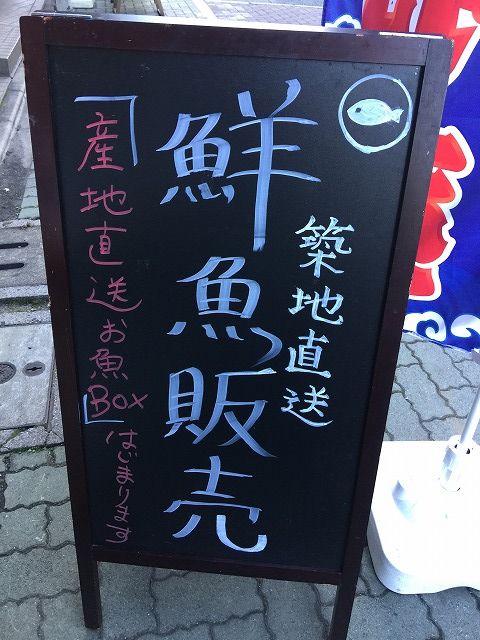 築地直送
鮮魚販売
「産地直送お魚BOX」はじまります